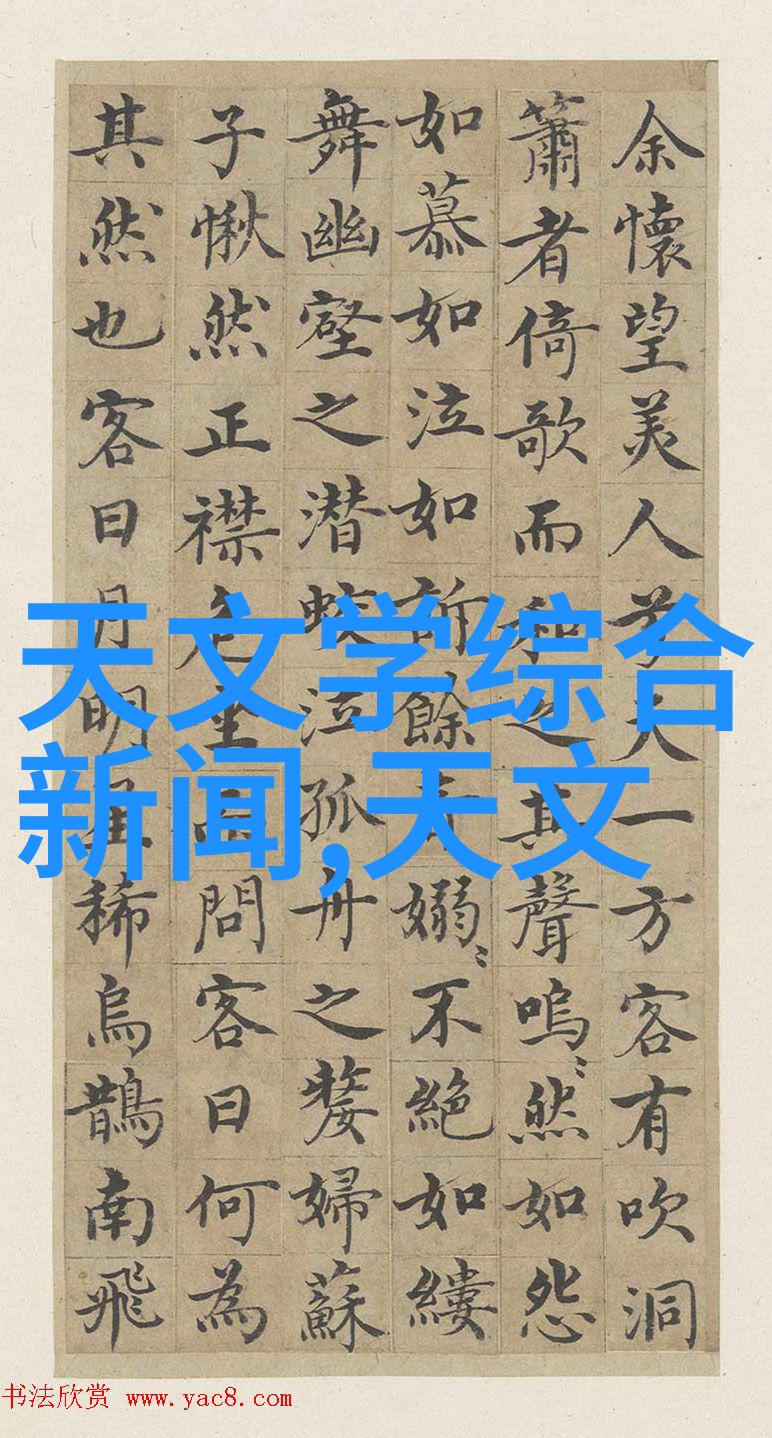 余懷望美人兮天一方客有吹洞
簫者倚歌而和之其聲嗚〻然如怨
如慕如泣如訴餘音嫋〻不絕如縷
舞幽壑之潜蛟泣孤舟之嫠婦蘇
子愀然正襟危坐而問客曰何為
其然也客曰月明星稀烏鵲南飛
天文学综合
新闻,天文
书法欣赏 www.yac8.com